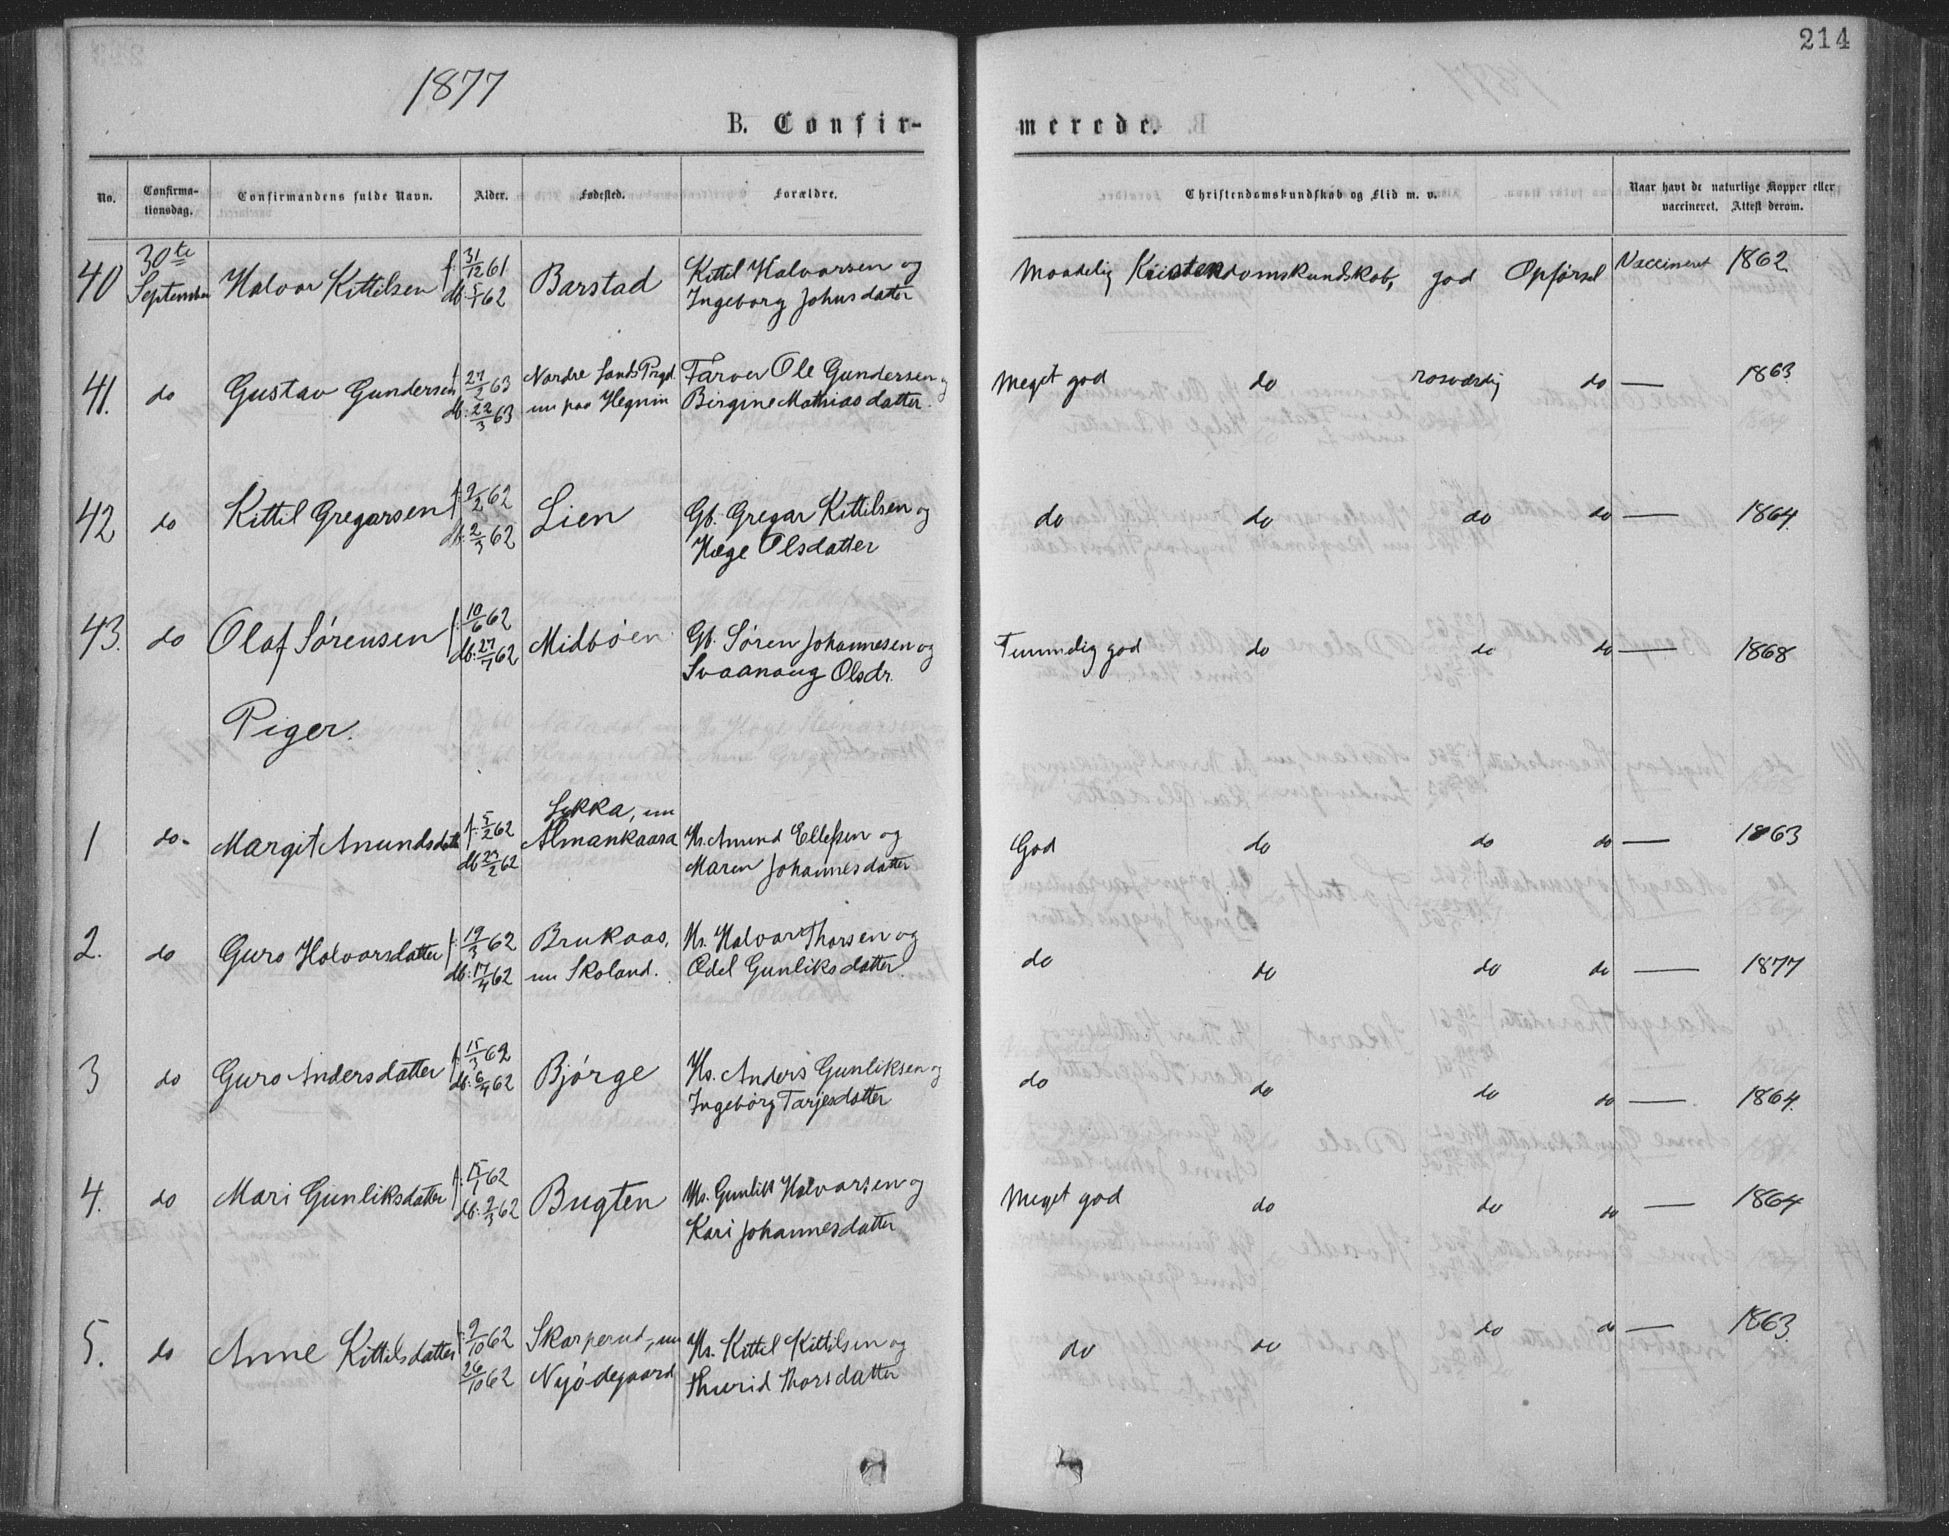 214
1877
B. Confir-
merede.
No.
Confirma-
tionsdag.
Confirmandens fulde Navn.
Alder.
Fødested.
Forældre.
Christendomskundskab og Flid m. v.
Naar havt de naturlige Kopper eller
vaccineret. Attest derom.
40 30te September Halvor Kittilsen f. 31/12 61 db. 5/1 62 Barstad Kittil Halvorsen og
Ingeborg Johnsdatter
Maadelig Kristendomskundskab, god Opførsel Vaccineret 1862
41. do Gustav Gundersen f. 27/2 63 db. 22/3 63 Nordre Lands Prgd. nu paa Hegnin Farver Ole Gundersen og
Birgine Mathiasdatter.
Meget god do rosværdig do — 1863
42 do Kittil Gregarsen f. 2/2 62 db. 2/3 62 Lien Gb. Gregar Kittilsen og
Hæge Olsdatter
do do do do — 1864
43. do Olaf Sørensen f. 10/6 62 db. 27/7 62 Midbøen Gb. Søren Johannesen og
Svaanaug Olsdr.
Temmelig god do do do — 1868
Piger.
1 do Margit Anundsdatter f. 5/2 62 db 23/2 62 Lykka, nu
Almankaasa Hs. Anund Ellefsen og
Maren Johannesdatter
God do do do — 1863
2. do Guro Halvorsdatter f. 19/3 62 db. 17/4 62 Brukaas,
nu Skoland. Hs. Halvor Thorsen og
Ødel Gunliksdatter.
do do do do — 1877
3 do Guro Andersdatter f. 15/3 62 db. 6/4 62 Bjørge Hs. Anders Gunliksen og
Ingebørg Tarjesdatter
do do do do — 1864.
4. do Mari Gunliksdatter f. 15/1 62 db. 9/3 62 Bugten Hs. Gunlik Halvorsen og
Kari Johannesdatter
Meget god do do do — 1864
5. do Anne Kittilsdatter f. 9/10 62 26/10 62 Skarperud, nu
Nyødegaard Hs. Kittil Kittilsen og
Thurid Thorsdatter
do do do do — 1863